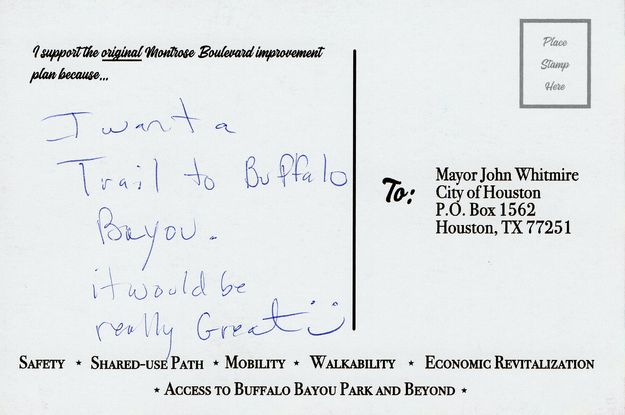 I support the original Montrose Boulevard improvement
plan because...
I want a
Trail to Buffalo
Bayou.
it would be
really Great
Place
Stamp
Here
To:
Mayor John Whitmire
City of Houston
P.O. Box 1562
Houston, TX 77251
SAFETY ⋆ SHARED-USE PATH ⋆ MOBILITY ⋆ WALKABILITY ⋆ ECONOMIC REVITALIZATION
⋆ ACCESS TO BUFFALO BAYOU PARK AND BEYOND ⋆